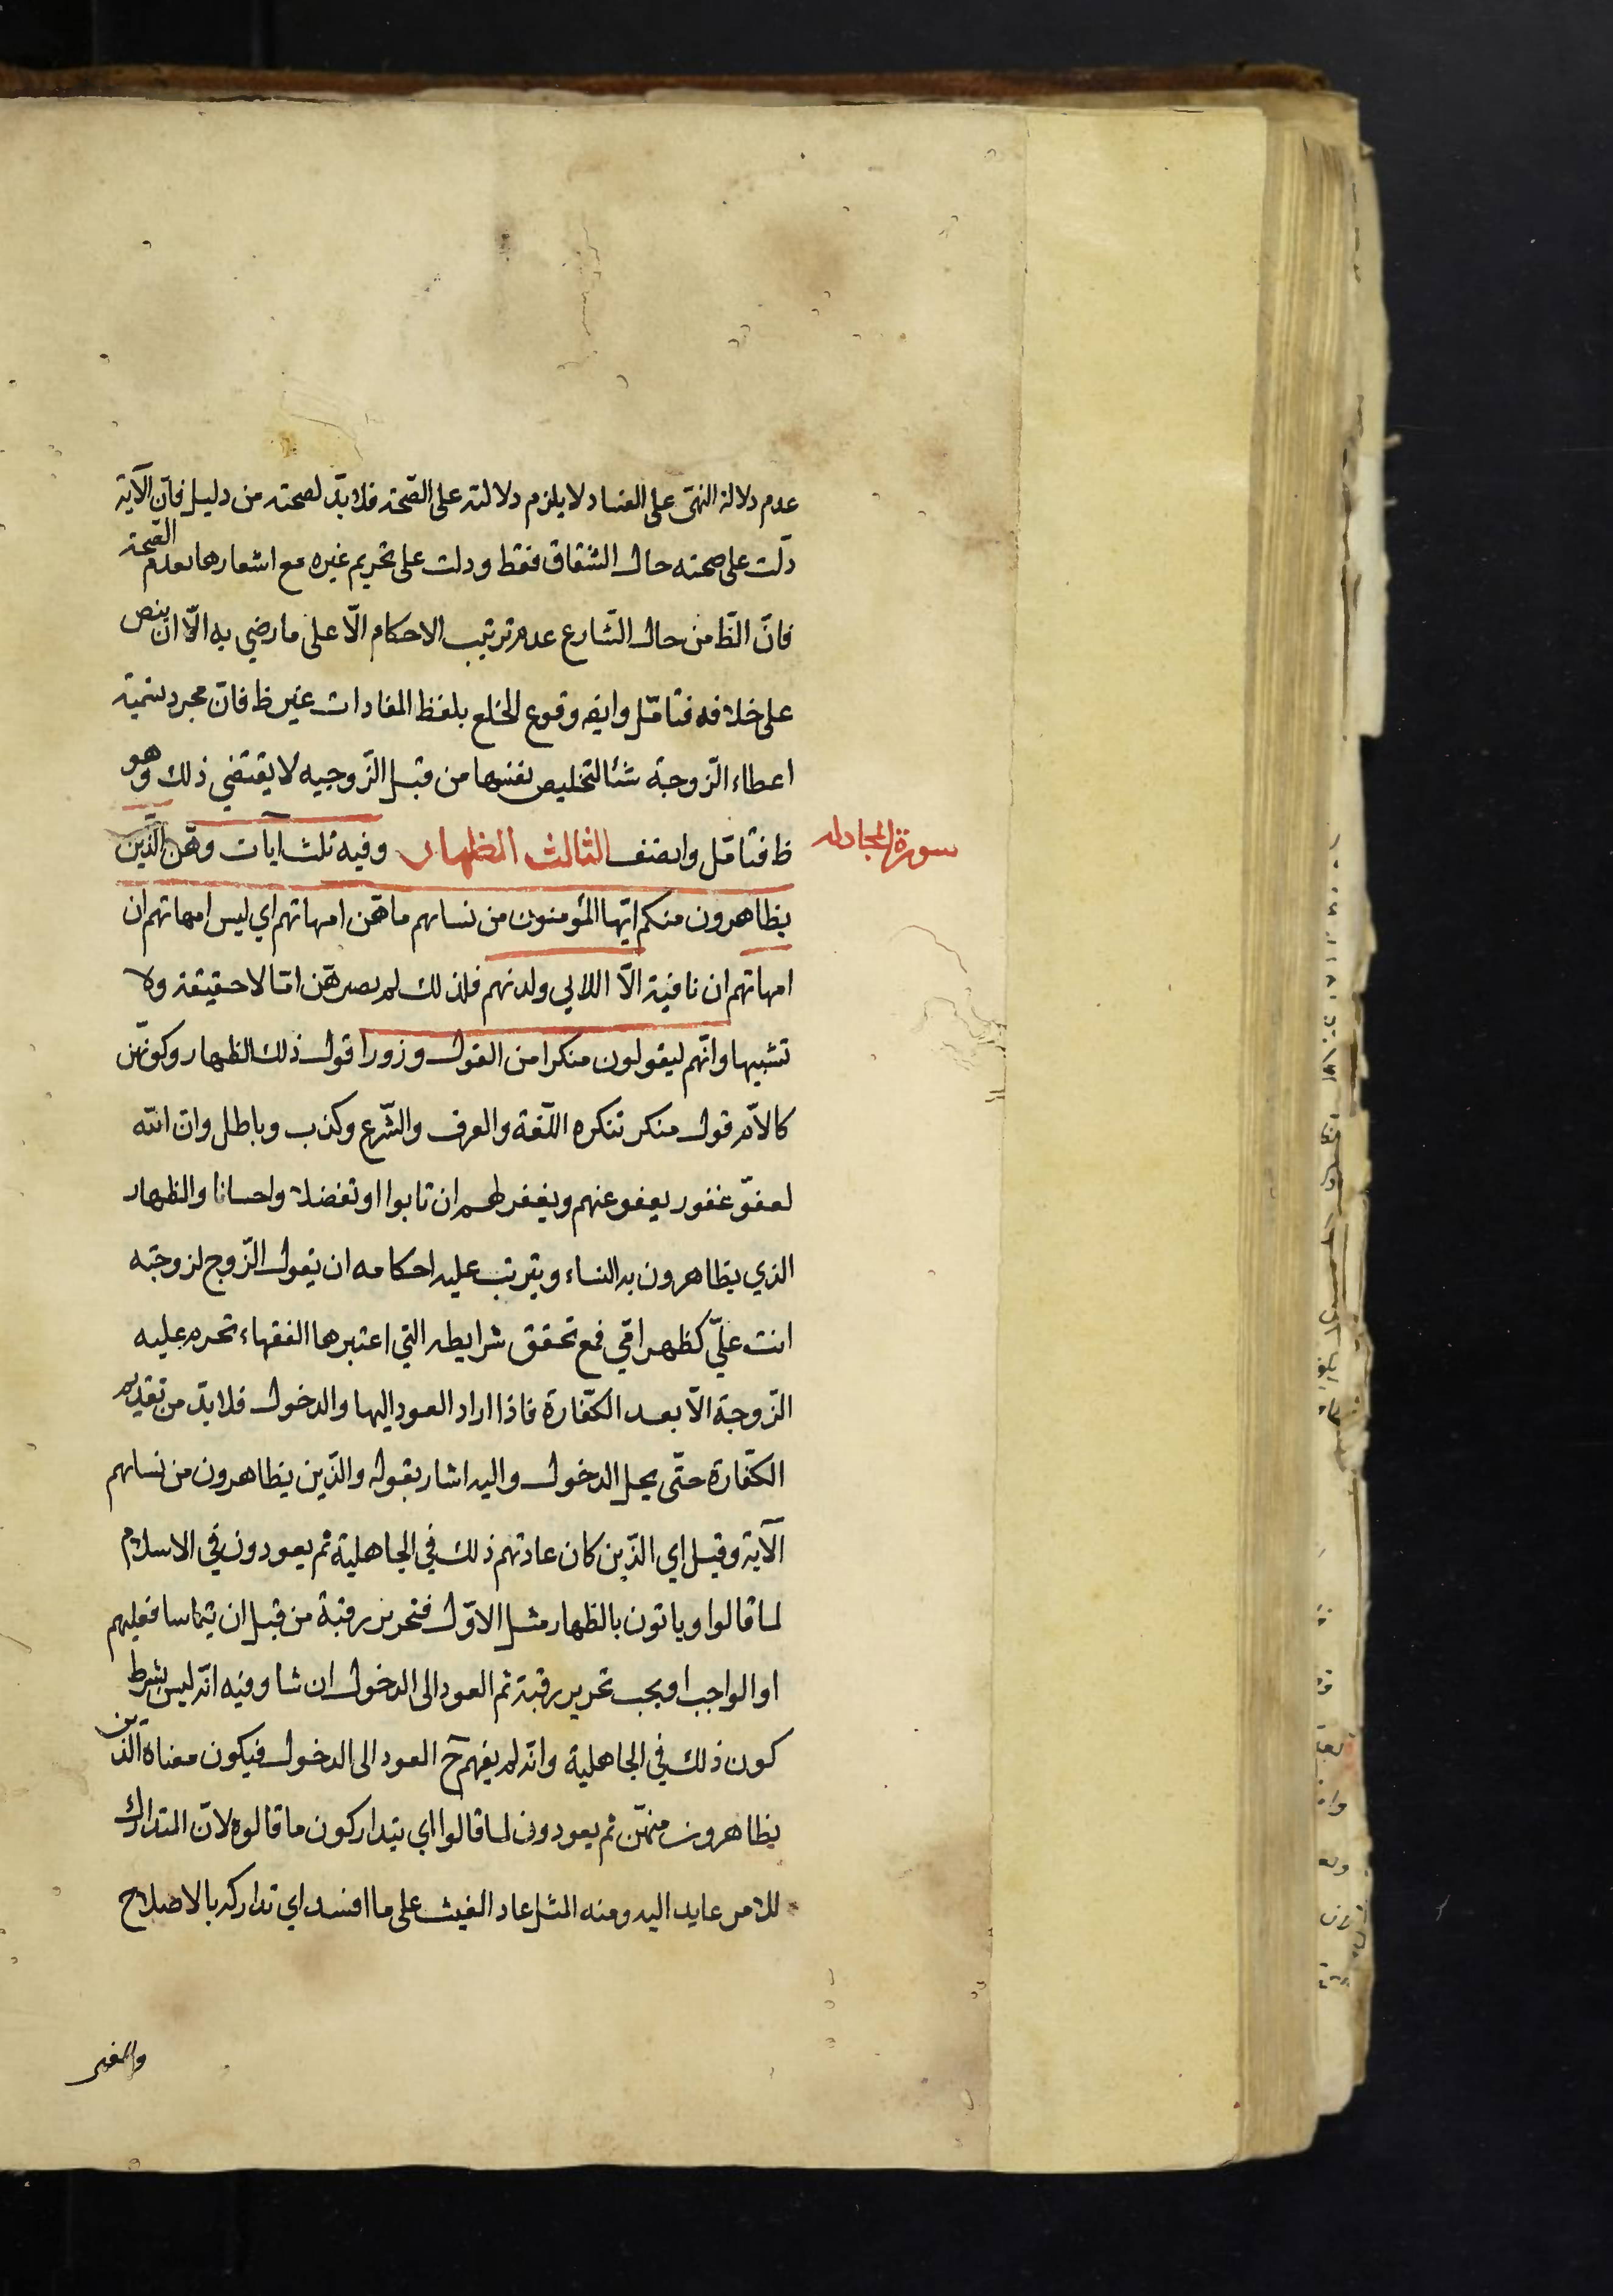 عدم دلالة النهى على الفساد لا يلزم دلالته على الصّحة فلا بدّ لصحته من دليل فانّ الآية
دلّت على صحته حال الشقاق فقط و دلت على تحريم غيره مع اشعارها بعدم الصّحة
فانّ الظّ من حال الشّارع عدم ترتيب الاحكام الّا على ما رضي به الّا ان ينص
على خلافه فتامّل وايضه وقوع الخلع بلفظ المفادات غير ظ فانّ مجرد تسمية
اعطاء الزّوجة شئا لتخليص نفسها من قبل الزّوجيه لا يقتضي ذلك وهو
سورة المجادله
ظ فتامّل وانصف الثالث الظهار وفيه ثلث ايآت وهّن الّذين
يظاهرون منكم ايّها المؤمنون من نسائهم ما هّن امهاتهم اي ليس امهاتهم ان
امهاتهم ان نافية الّا اللائي ولدنهم فلذلك لم يصر هّن امّا لا حقيقة ولا
تشبيها وانّهم ليقولون منكرا من القول و زورا قول ذلك الظهار وكونّهن
كالامّ قول منكر تنكره اللّغة والعرف والشّرع وكذب وباطل وان الله
لعفوّ غفور يعفو عنهم ويغفر لهم ان تابوا او تفضلا واحسانا والظهار
الذي يظاهرون به النساء ويترتب عليه احكامه ان يقول الزّوج لزوجته
انت علىّ كظهر امّي فمع تحقق شرايطه التي اعتبرها الفقهاء تحرم عليه
الزّوجة الّا بعد الكفّارة فاذا اراد العود اليها والدخول فلا بدّ من تقديم
الكفّارة حتّى يحل الدخول واليه اشار بقوله والذّين يظاهرون من نسائهم
الآية وقيل اي الذّين كان عادتهم ذلك في الجاهلية ثم يعودون في الاسلام
لما قالوا وياتون بالظهار مثل الاوّل فتحرير رقبة من قبل ان يتماسا فعليهم
او الواجب او يجب تحرير رقبة ثم العود الى الدخول ان شا وفيه انّه ليس بشرط
كون ذلك في الجاهلية وانّه لم يفهم حٓ العود الى الدخول فيكون معناه الّذين
يظاهرون منهّن ثم يعودون لما قالوا اي يتداركون ما قالوه لانّ المتدارك
للامر عايد اليه ومنه المثل عاد الغيث على ما افسد اي تداركه بالاصلاح
والمعنى